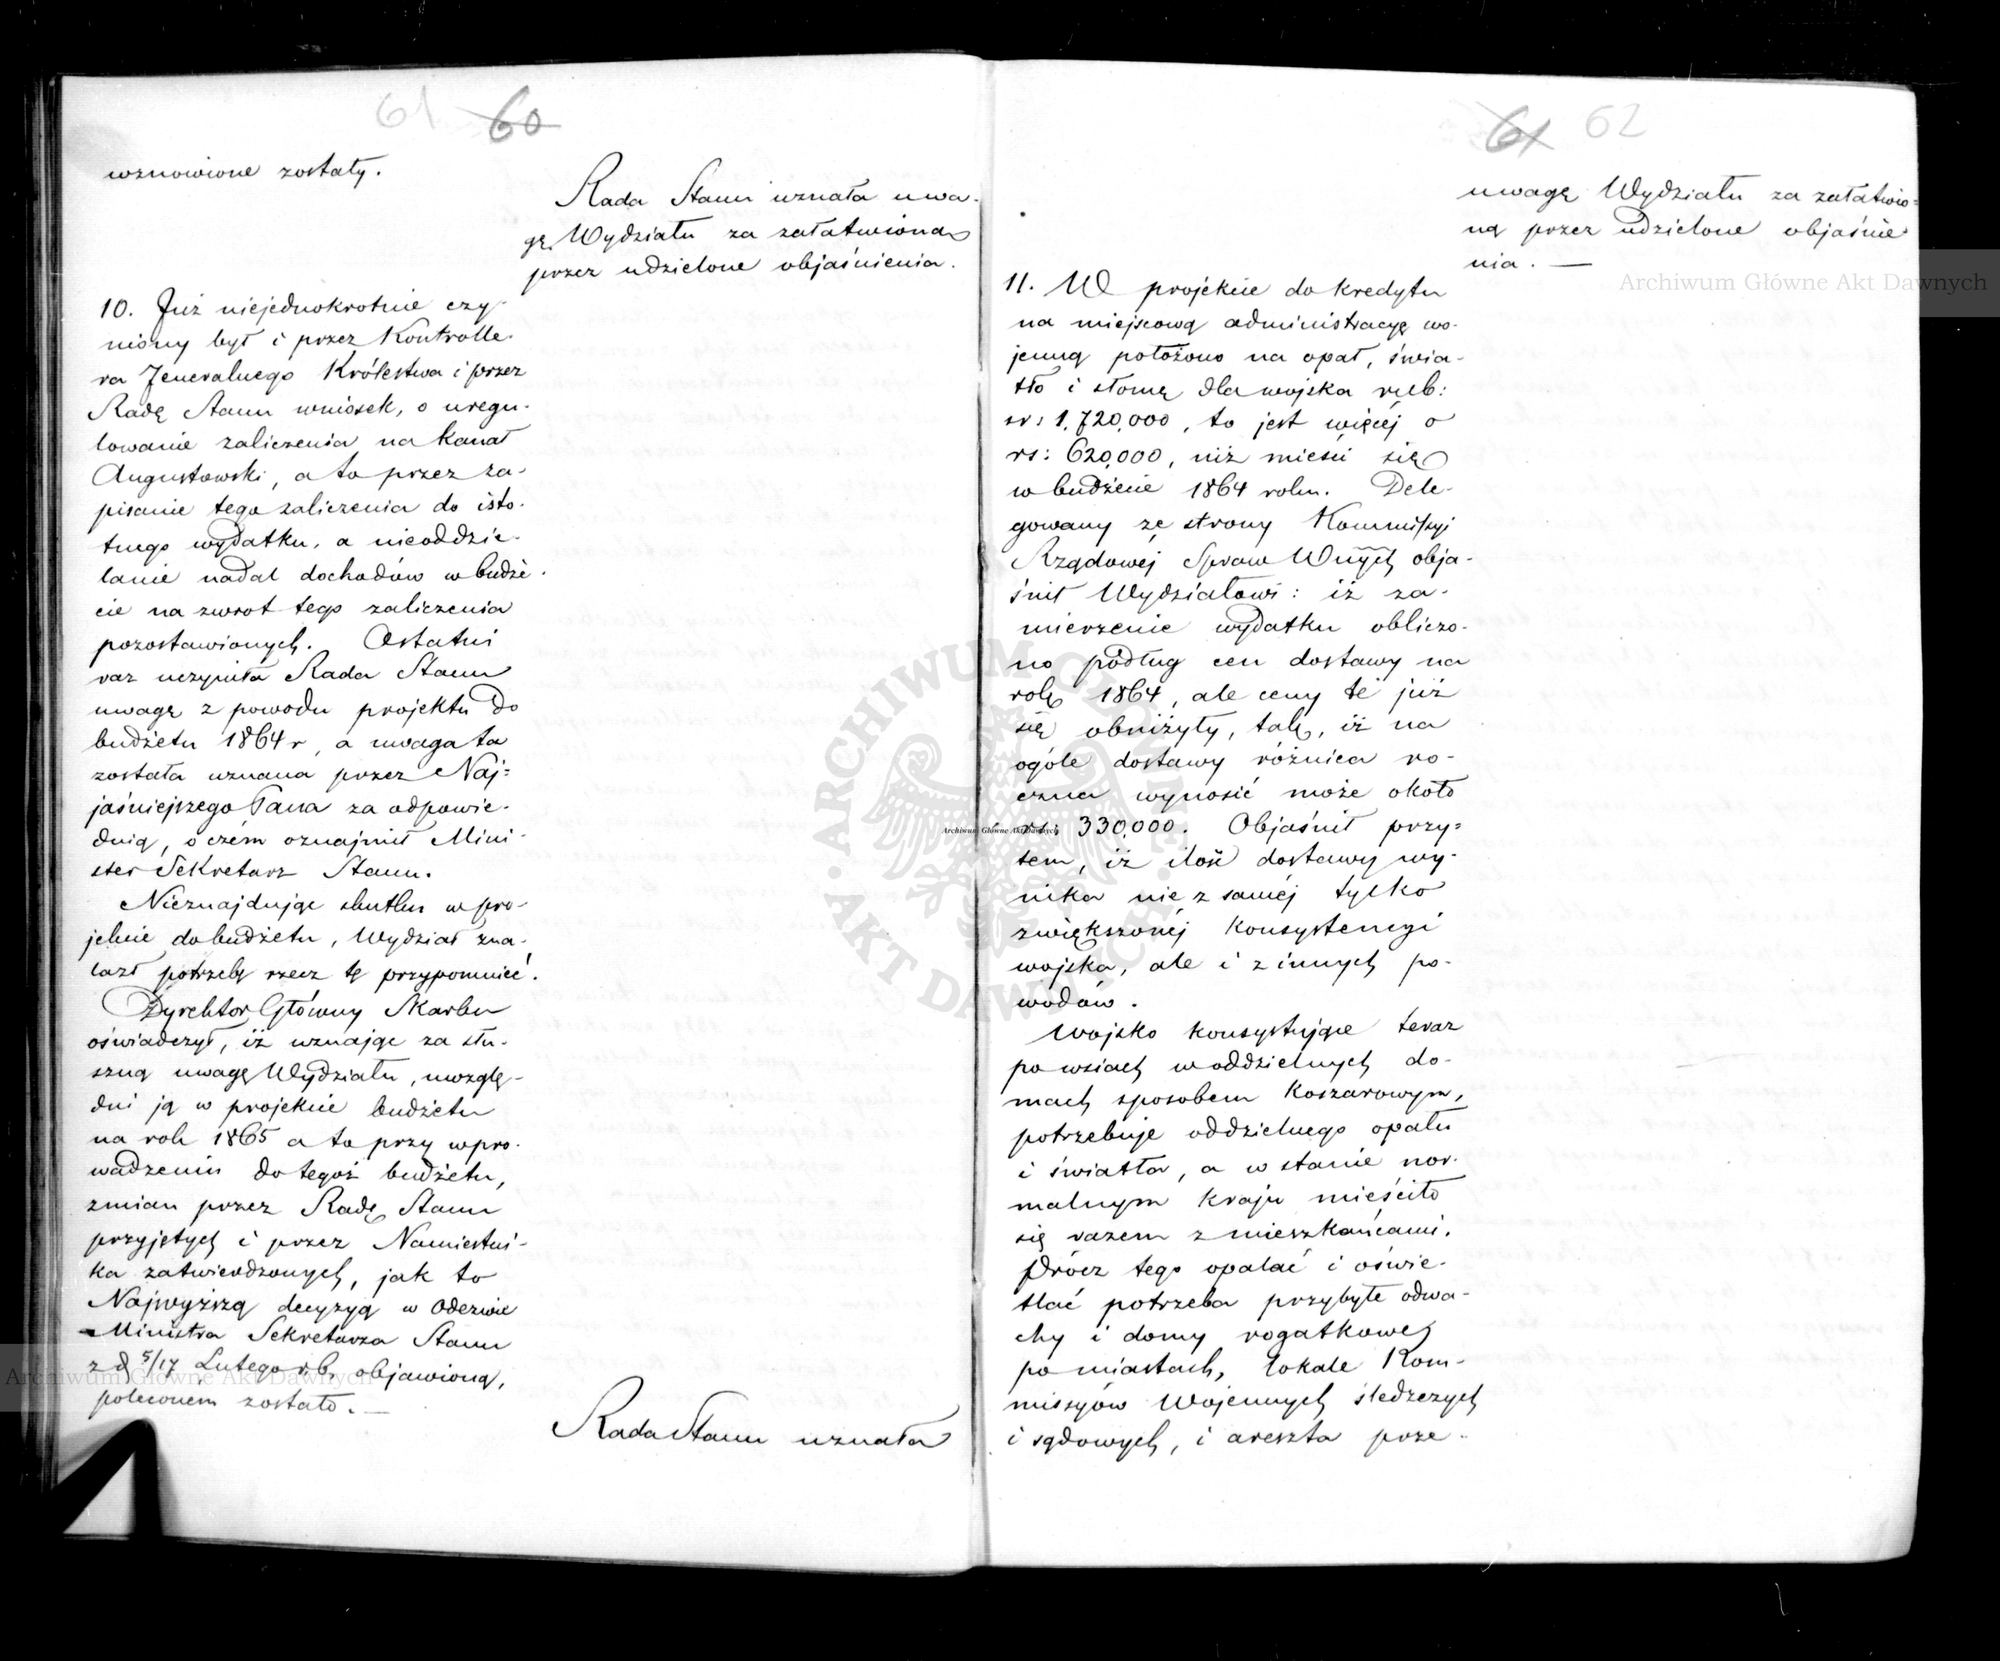 61 60
wznowione zostały.
Rada Stanu uznała uwa-
gę Wydziału za załatwioną
przez udzielone objaśnienia.
10. Już niejednokrotnie czy-
niony był i przez Kontrolle-
ra Jeneralnego Królestwa i przez
Radę Stanu wniosek, o uregu-
lowanie zaliczenia na kanał
Augustowski, a to przez za-
pisanie tego zaliczenia do isto-
tnego wydatku, a nieoddzie-
lanie nadal dochodów w budże-
cie na zwrot tego zaliczenia
pozostawionych. Ostatni
raz uczyniła Rada Stanu
uwagę z powodu projektu do
budżetu 1864 r, a uwaga ta
została uznana przez Naj=
jaśniejszego Pana za odpowie-
dnią, o czém oznajmił Mini-
ster Sekretarz Stanu.
Nieznajdując skutku w pro-
jekcie do budżetu, Wydział zna-
lazł potrzebę rzecz tę przypomnieć.
Dyrektor Główny Skarbu
oświadczył, iż uznając za słu-
szną uwagę Wydziału, uwzglę-
dni ją w projekcie budżetu
na rok 1865 a to przy wpro-
wadzeniu do tegoż budżetu,
zmian przez Radę Stanu
przyjętych i przez Namiestni-
ka zatwierdzonych, jak to
Najwyższą decyzyą w Odezwie
Ministra Sekretarza Stanu
z d 5/17 Lutego r.b. objawioną,
poleconem zostało. —
Rada Stanu uznała
61 62
uwagę Wydziału za załatwio=
ną przez udzielone objaśnie
nia. —
11. W projekcie do kredytu
na miejscową administracyę wo-
jenną położono na opał, świa-
tło i słomę dla wojska rub:
sr: 1,720,000, to jest więcéj o
rs: 620,000, niż mieści się
w budżecie 1864 roku. Dele-
gowany ze strony Kommissyi
Rządowéj Spraw Wnych obja-
śnił Wydziałowi: iż za-
mierzenie wydatku obliczo-
no podług cen dostawy na
rok 1864, ale ceny te już
się obniżyły, tak, iż na
ogóle dostawy różnica ro-
czna wynosić może około
rs: 330,000. Objaśnił przy=
tem, iż ilość dostawy wy-
nika nie z saméj tylko
zwiększonéj konsystencyi
wojska, ale i z innych po-
wodów.
Wojsko konsystujące teraz
po wsiach w oddzielnych do-
mach sposobem koszarowym,
potrzebuje oddzielnego opału
i światła, a w stanie nor-
malnym kraju mieściło
się razem z mieszkańcami.
Prócz tego opalać i oświe-
tlać potrzeba przybyłe odwa-
chy i domy rogatkowe
po miastach, lokale Kom-
missyów Wojennych śledczych
i sądowych, i areszta prze-
Archiwum Główne Akt Dawnych
Archiwum Główne Akt Dawnych
Archiwum Główne Akt Dawnych
ARCHIWUM GŁÓWNE AKT DAWNYCH